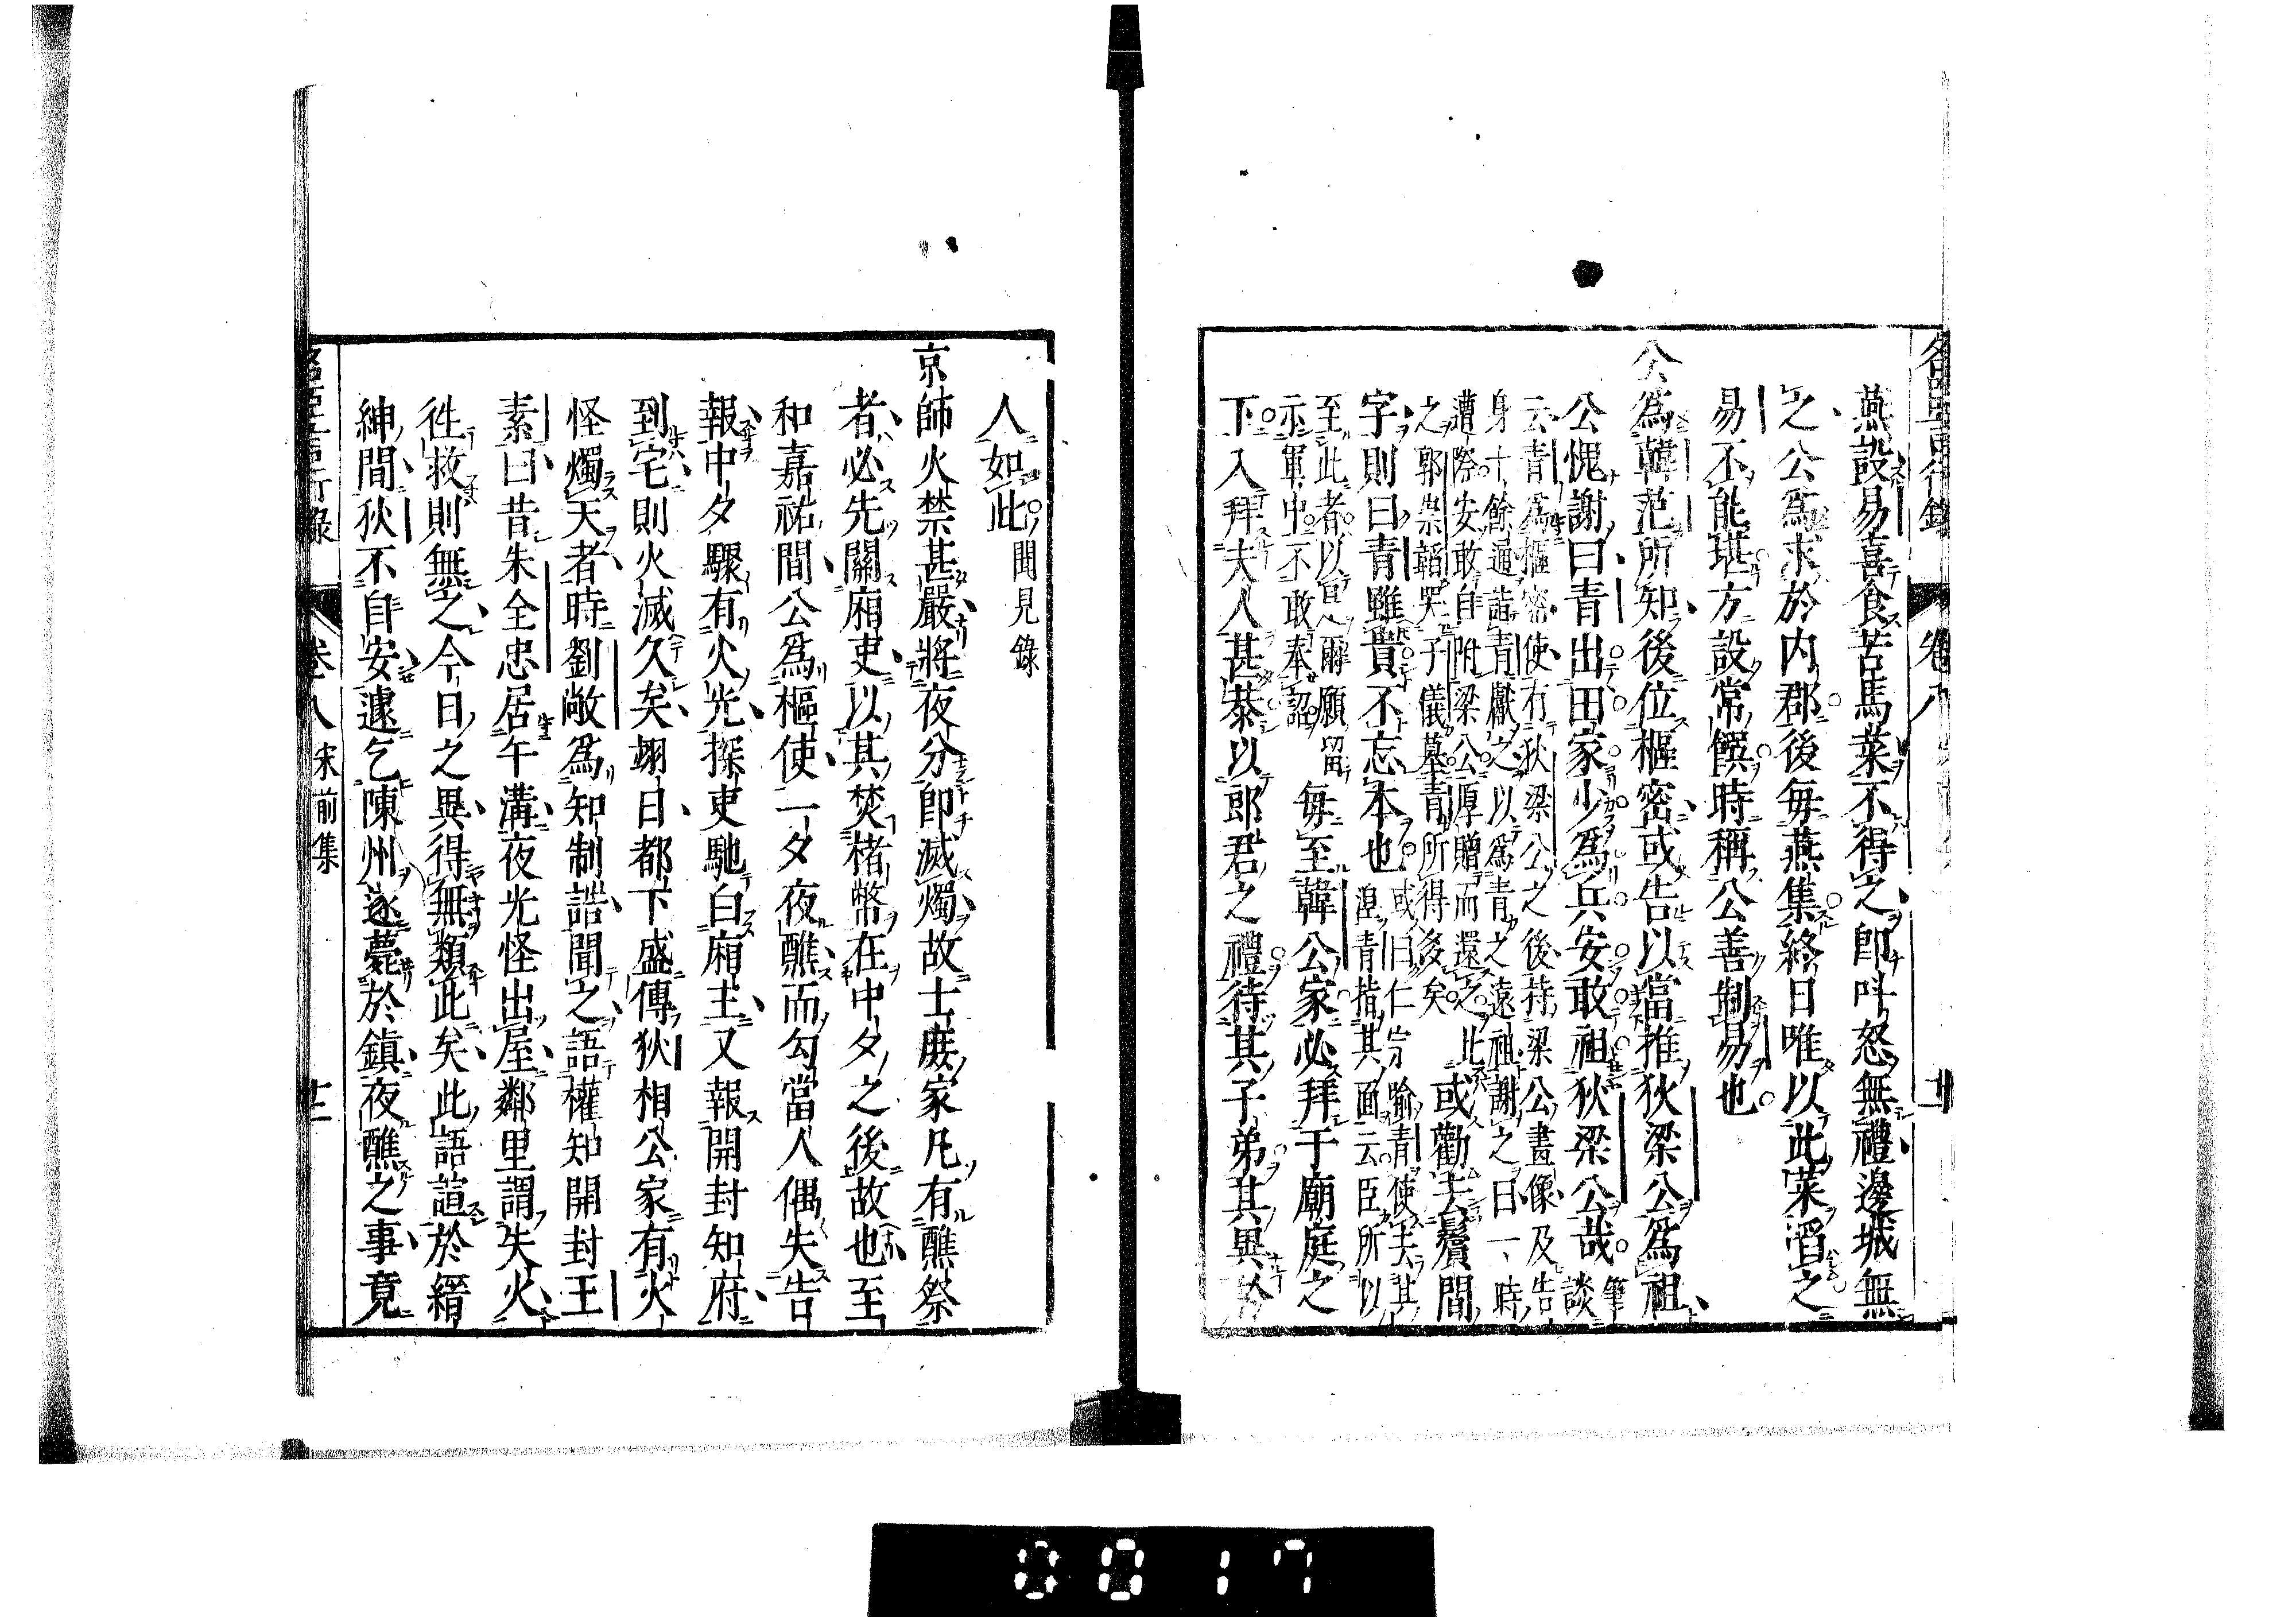 名臣言行錄 卷八
燕設易喜食苦馬菜不得之卽呌怒無禮邊城無
之公爲求於内郡後毎燕集終日唯以此菜㴞之
易不能堪方設常饌時稱公善制易也
公爲韓范所知後位樞密或告以當推狄梁公爲祖
公愧謝曰青出田家少爲兵安敢祖狄梁公哉筆談
云青爲樞密使有狄梁公之後持梁公畫像及告
身十餘通詣青獻之以爲青之遠祖謝之曰一時
遭際安敢自附梁公厚贈而還之此
之郭崇韜哭子儀墓青所得多矣
或勸去鬢間
字則曰青雖貴不忘本也
或曰仁宗喻青使去其
湼青指其面云臣所以
至此者以爾願留
示軍中不敢奉詔
毎至韓公家必拜于廟庭之
下入拜夫人甚恭以郎君之禮待其子弟其異於
人如此聞見錄
京師火禁甚嚴將夜分卽滅燭故士庻家凡有醮祭
者必先關廂吏以其焚楮幣在中夕之後故也至
和嘉祐間公爲樞使一夕夜醮而勾當人偶失告
報中夕驟有火光探吏馳白廂主又報開封知府
到宅則火滅久矣翊日都下盛傳狄相公家有火
怪燭天者時劉敞爲知制誥聞之語權知開封王
素曰昔朱全忠居午溝夜光怪出屋鄰里謂失火
徃救則無之今日之異得無類此矣此語諠於縉
紳間狄不自安遽乞陳州遂薨於鎮夜醮之事竟
名臣言行錄 卷八 宋前集
0017